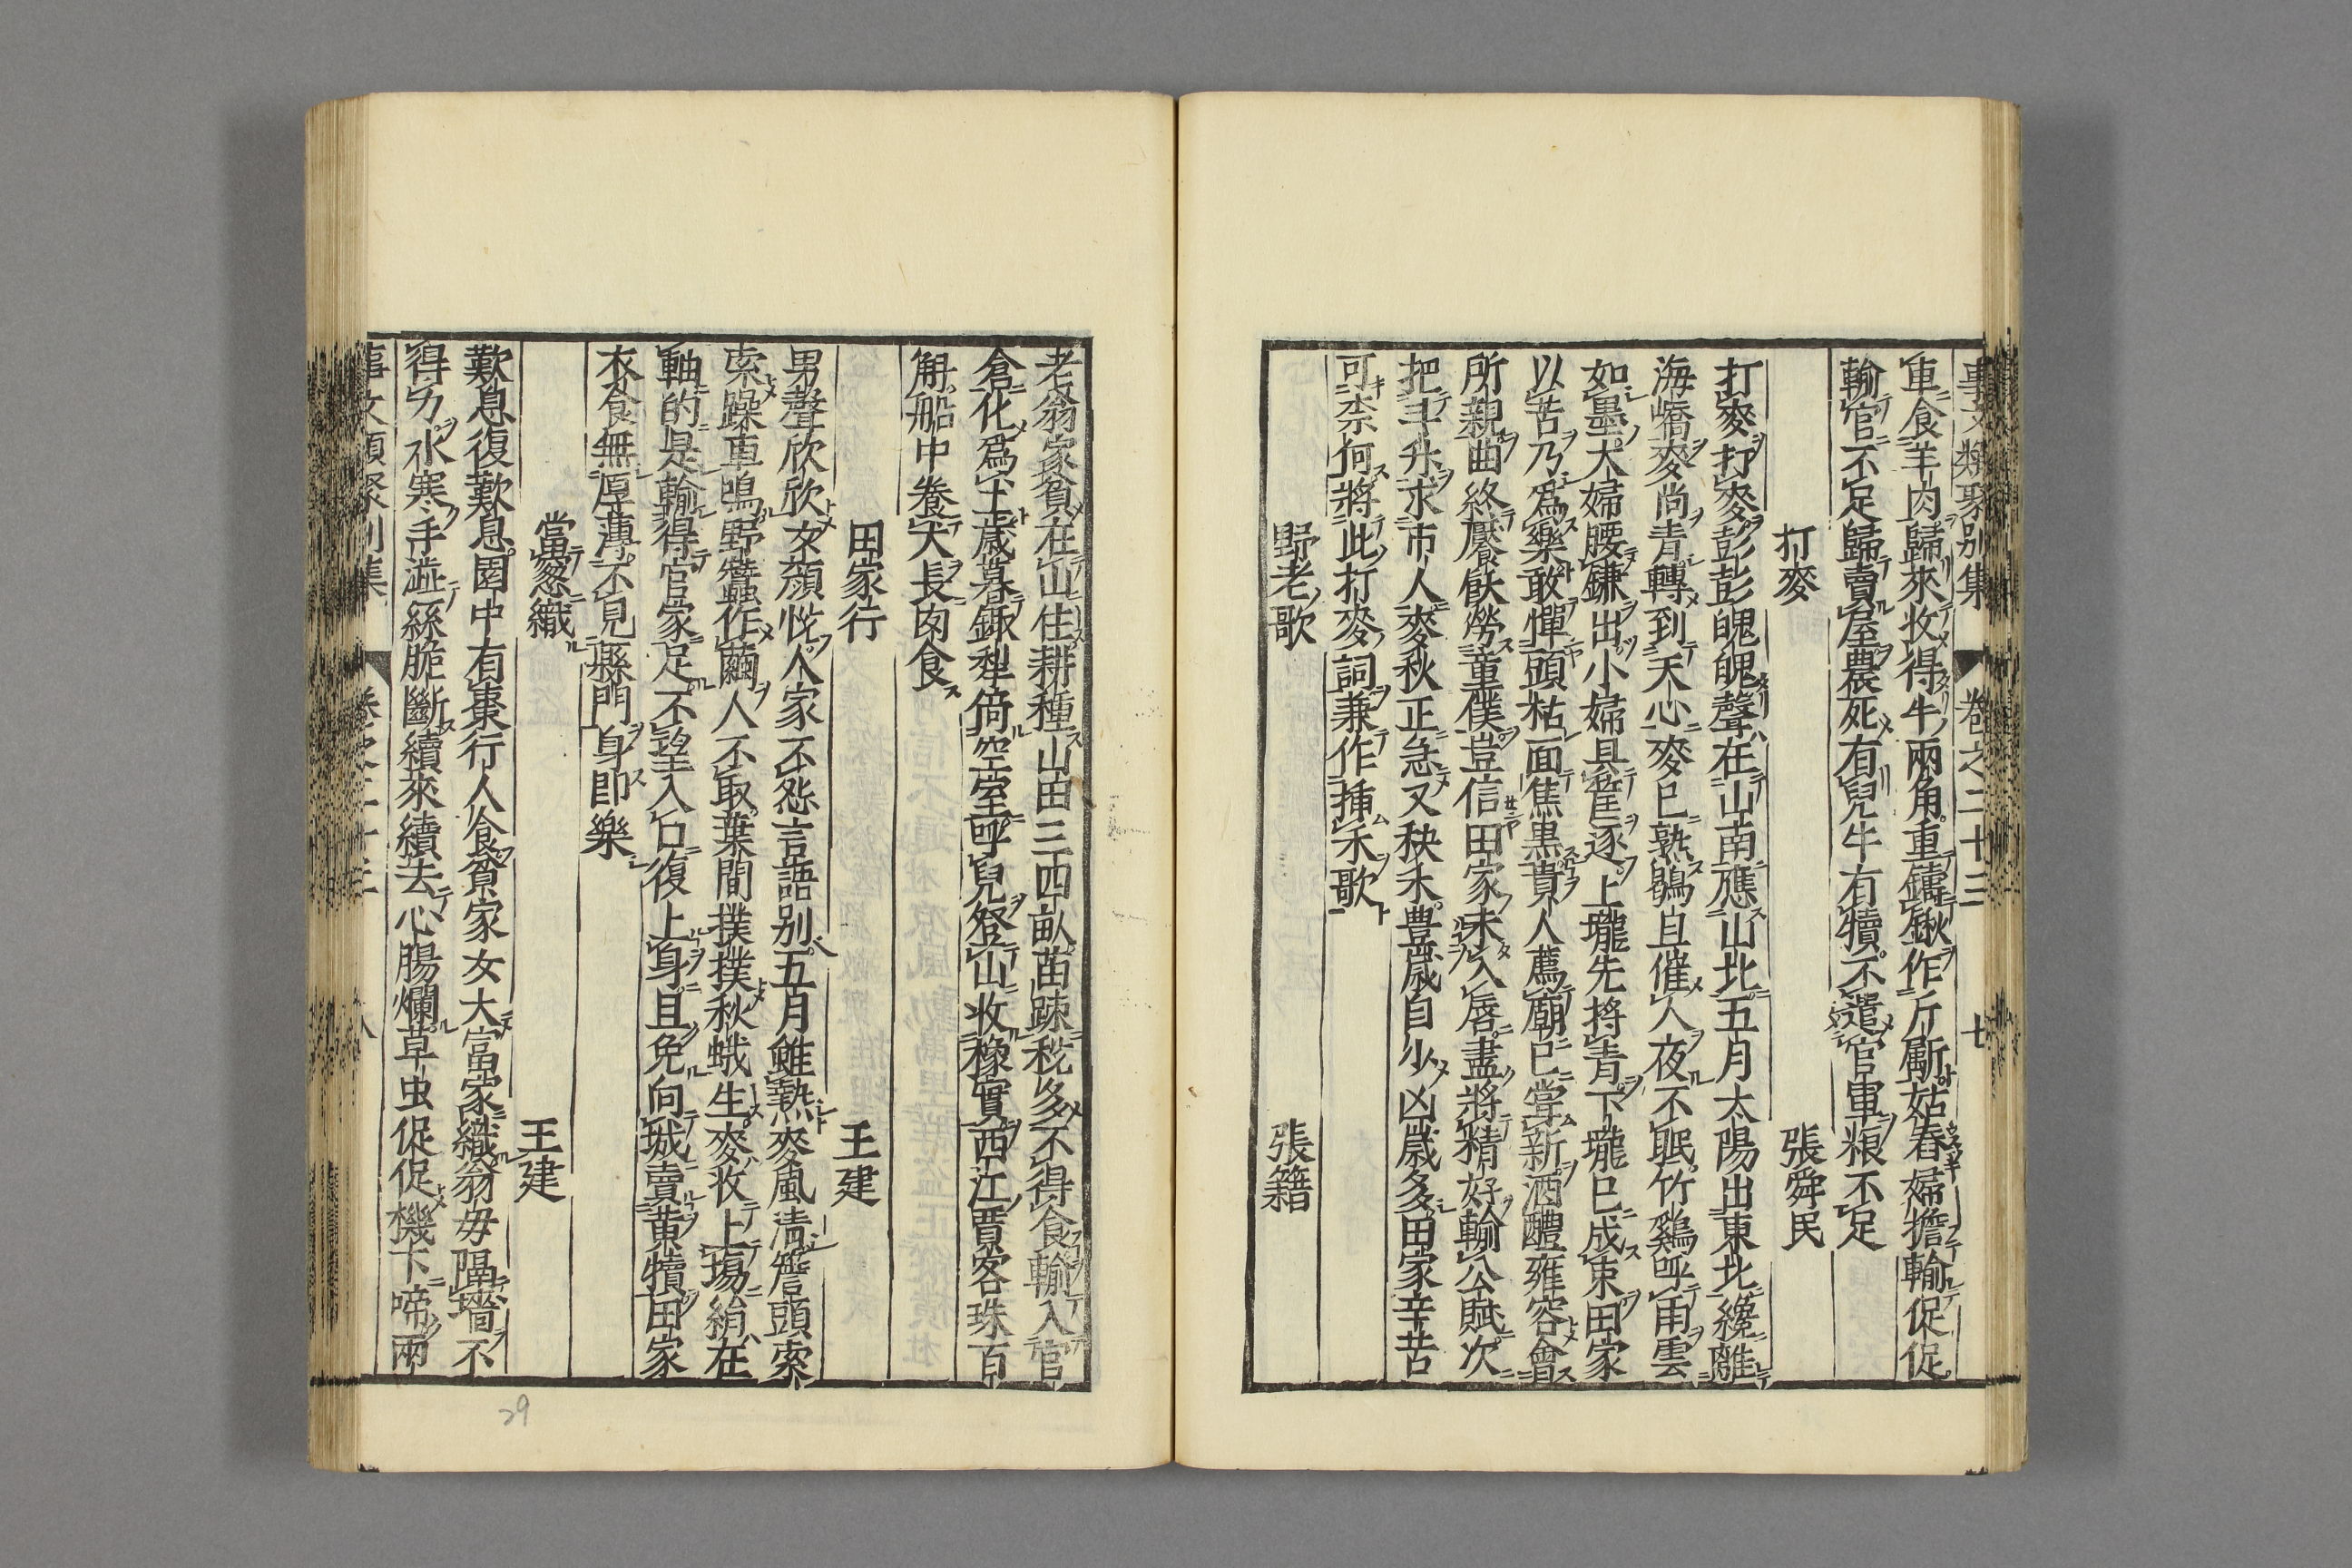 事文類聚别集 卷之二十三 七
車食羊肉歸來收得牛兩角重鑄鍬作斤斸姑舂婦擔輸促促
輸官不足歸賣屋農死有兒牛有犢不遣官軍粮不足
打麥 張舜民
打麥打麥彭彭魄魄聲在山南應山北五月太陽出東北纔離
海嶠麥尚青轉到天心麥已熟鶡且催人夜不眠竹鷄呼雨雲
如墨大婦腰鎌出小婦具筐逐上壠先捋青下壠已成束田家
以苦乃爲樂敢憚頭枯面焦黒貴人薦廟已甞新酒醴雍容會
所親曲終饜飫勞童僕豈信田家未入唇盡將精好輸公賦次
把斗升求市人麥秋正急又秧禾豊歲自少凶歲多田家辛苦
可柰何將此打麥詞兼作插禾歌
野老歌 張籍
老翁家貧在山住耕種山田三四畝苗疎稅多不得食輸入官
倉化爲土歲暮鋤犁倚空室呼兒登山收橡實西江賈客珠百
斛船中養犬長肉食
田家行 王建
男聲欣欣女顔恱人家不怨言語别五月雖熱麥風清簷頭索
索躁車鳴野蠶作繭人不取葉間撲撲秋蛾生麥收上塲絹在
軸的是輸得官家足不望入口復上身且免向城賣黄犢田家
衣食無厚薄不見縣門身即樂
當窓織 王建
歎息復歎息園中有棗行人食貧家女大富家織翁母隔墻不
得力水寒手澁絲脆斷續來續去心腸爛草虫促促機下啼兩